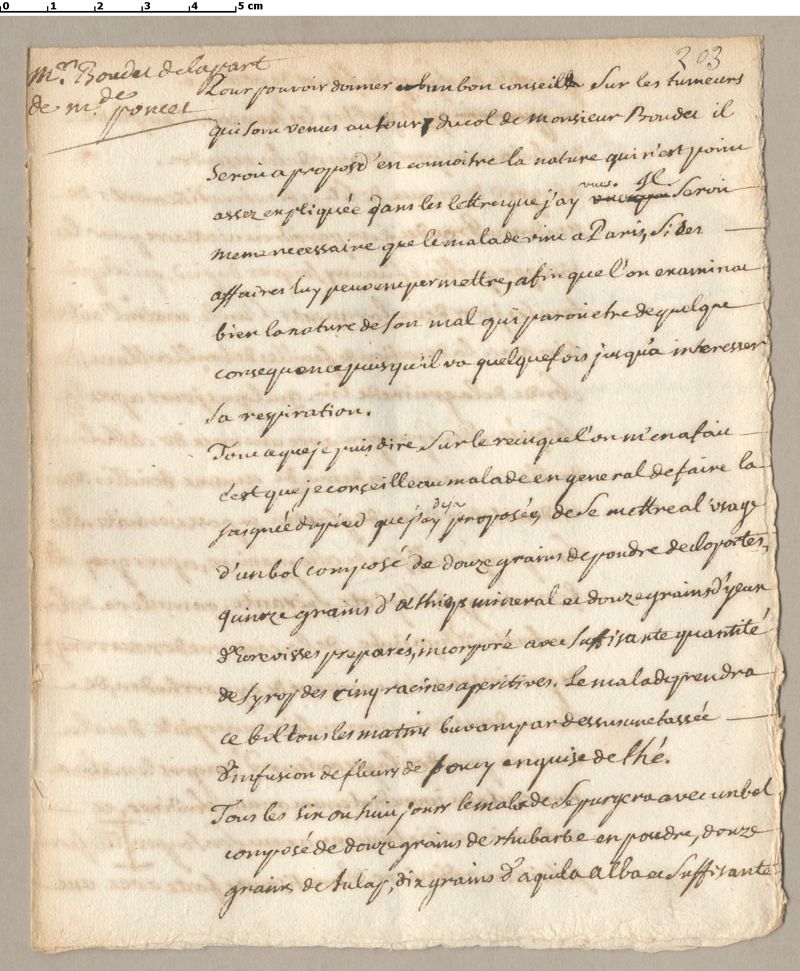 0 1 2 3 4 5 cm
203
mr. Boudet de la part
de mde poncet
Pour pouvoir donner un bon conseil Sur les tumeurs
qui sont venus autour du col de monsieur Boudet il
Seroit a propos d'en connoitre la nature qui n'est point
assez expliquée dans les lettres que j'ay vues. Il Seroit
meme necessaire que le malade vint a Paris, Si Ses
affaires luy peuvent permettre, afin que l'on examinat
bien la nature de Son mal qui paroit etre de quelque
consequence puisqu'il va quelquefois jusqu'a interesser
Sa respiration.
Tout ce que je puis dire Sur le recit que l'on m'en a fait
c'est que je conseille au malade en general de faire la
Saignée du pied que j'ay deja proposée, de Se mettre a l'usage
d'un bol composé de douze grains de poudre de cloportes,
quinze grains d'æthiops mineral et douze grains d'yeux
d'Ecrevisses preparés, incorporé avec Suffisante quantité
de Syrop des cinq racines aperitives. Le malade prendra
ce bol tous les matins buvant par dessus une tassée
d'infusion de fleurs de Soucy en guise de thé.
Tous les six ou huit jours le malade Se purgera avec un bol
composé de douze grains de rhubarbe en poudre, douze
grains de Julap, dix grains d'aquila alba et Suffisante